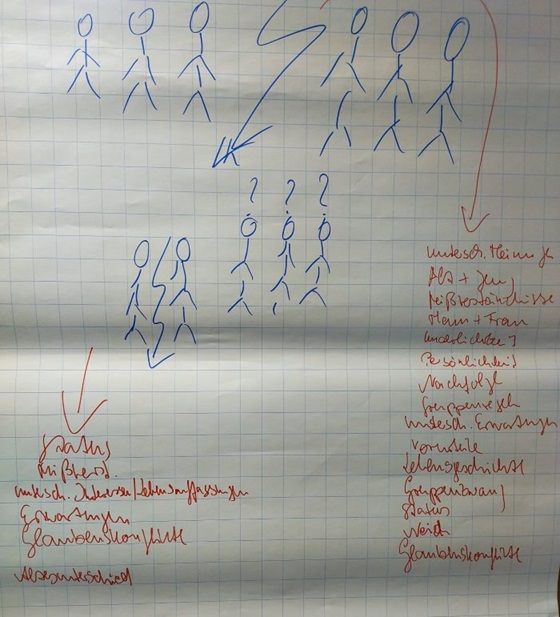 ? ? ?
untersch. Meinung
Alt + Jung
Mißverständnisse
Mann + Frau
Persönlichkeit
Nachfolge
Gruppenregeln
untersch. Erwartungen
Vorurteile
Lebensgeschichte
Gruppenzwang
Status
Neid
Glaubenskonflikte
Status
Mißverst.
untersch. Interessen/Lebensauffassungen
Erwartungen
Glaubenskonflikte
Altersunterschied